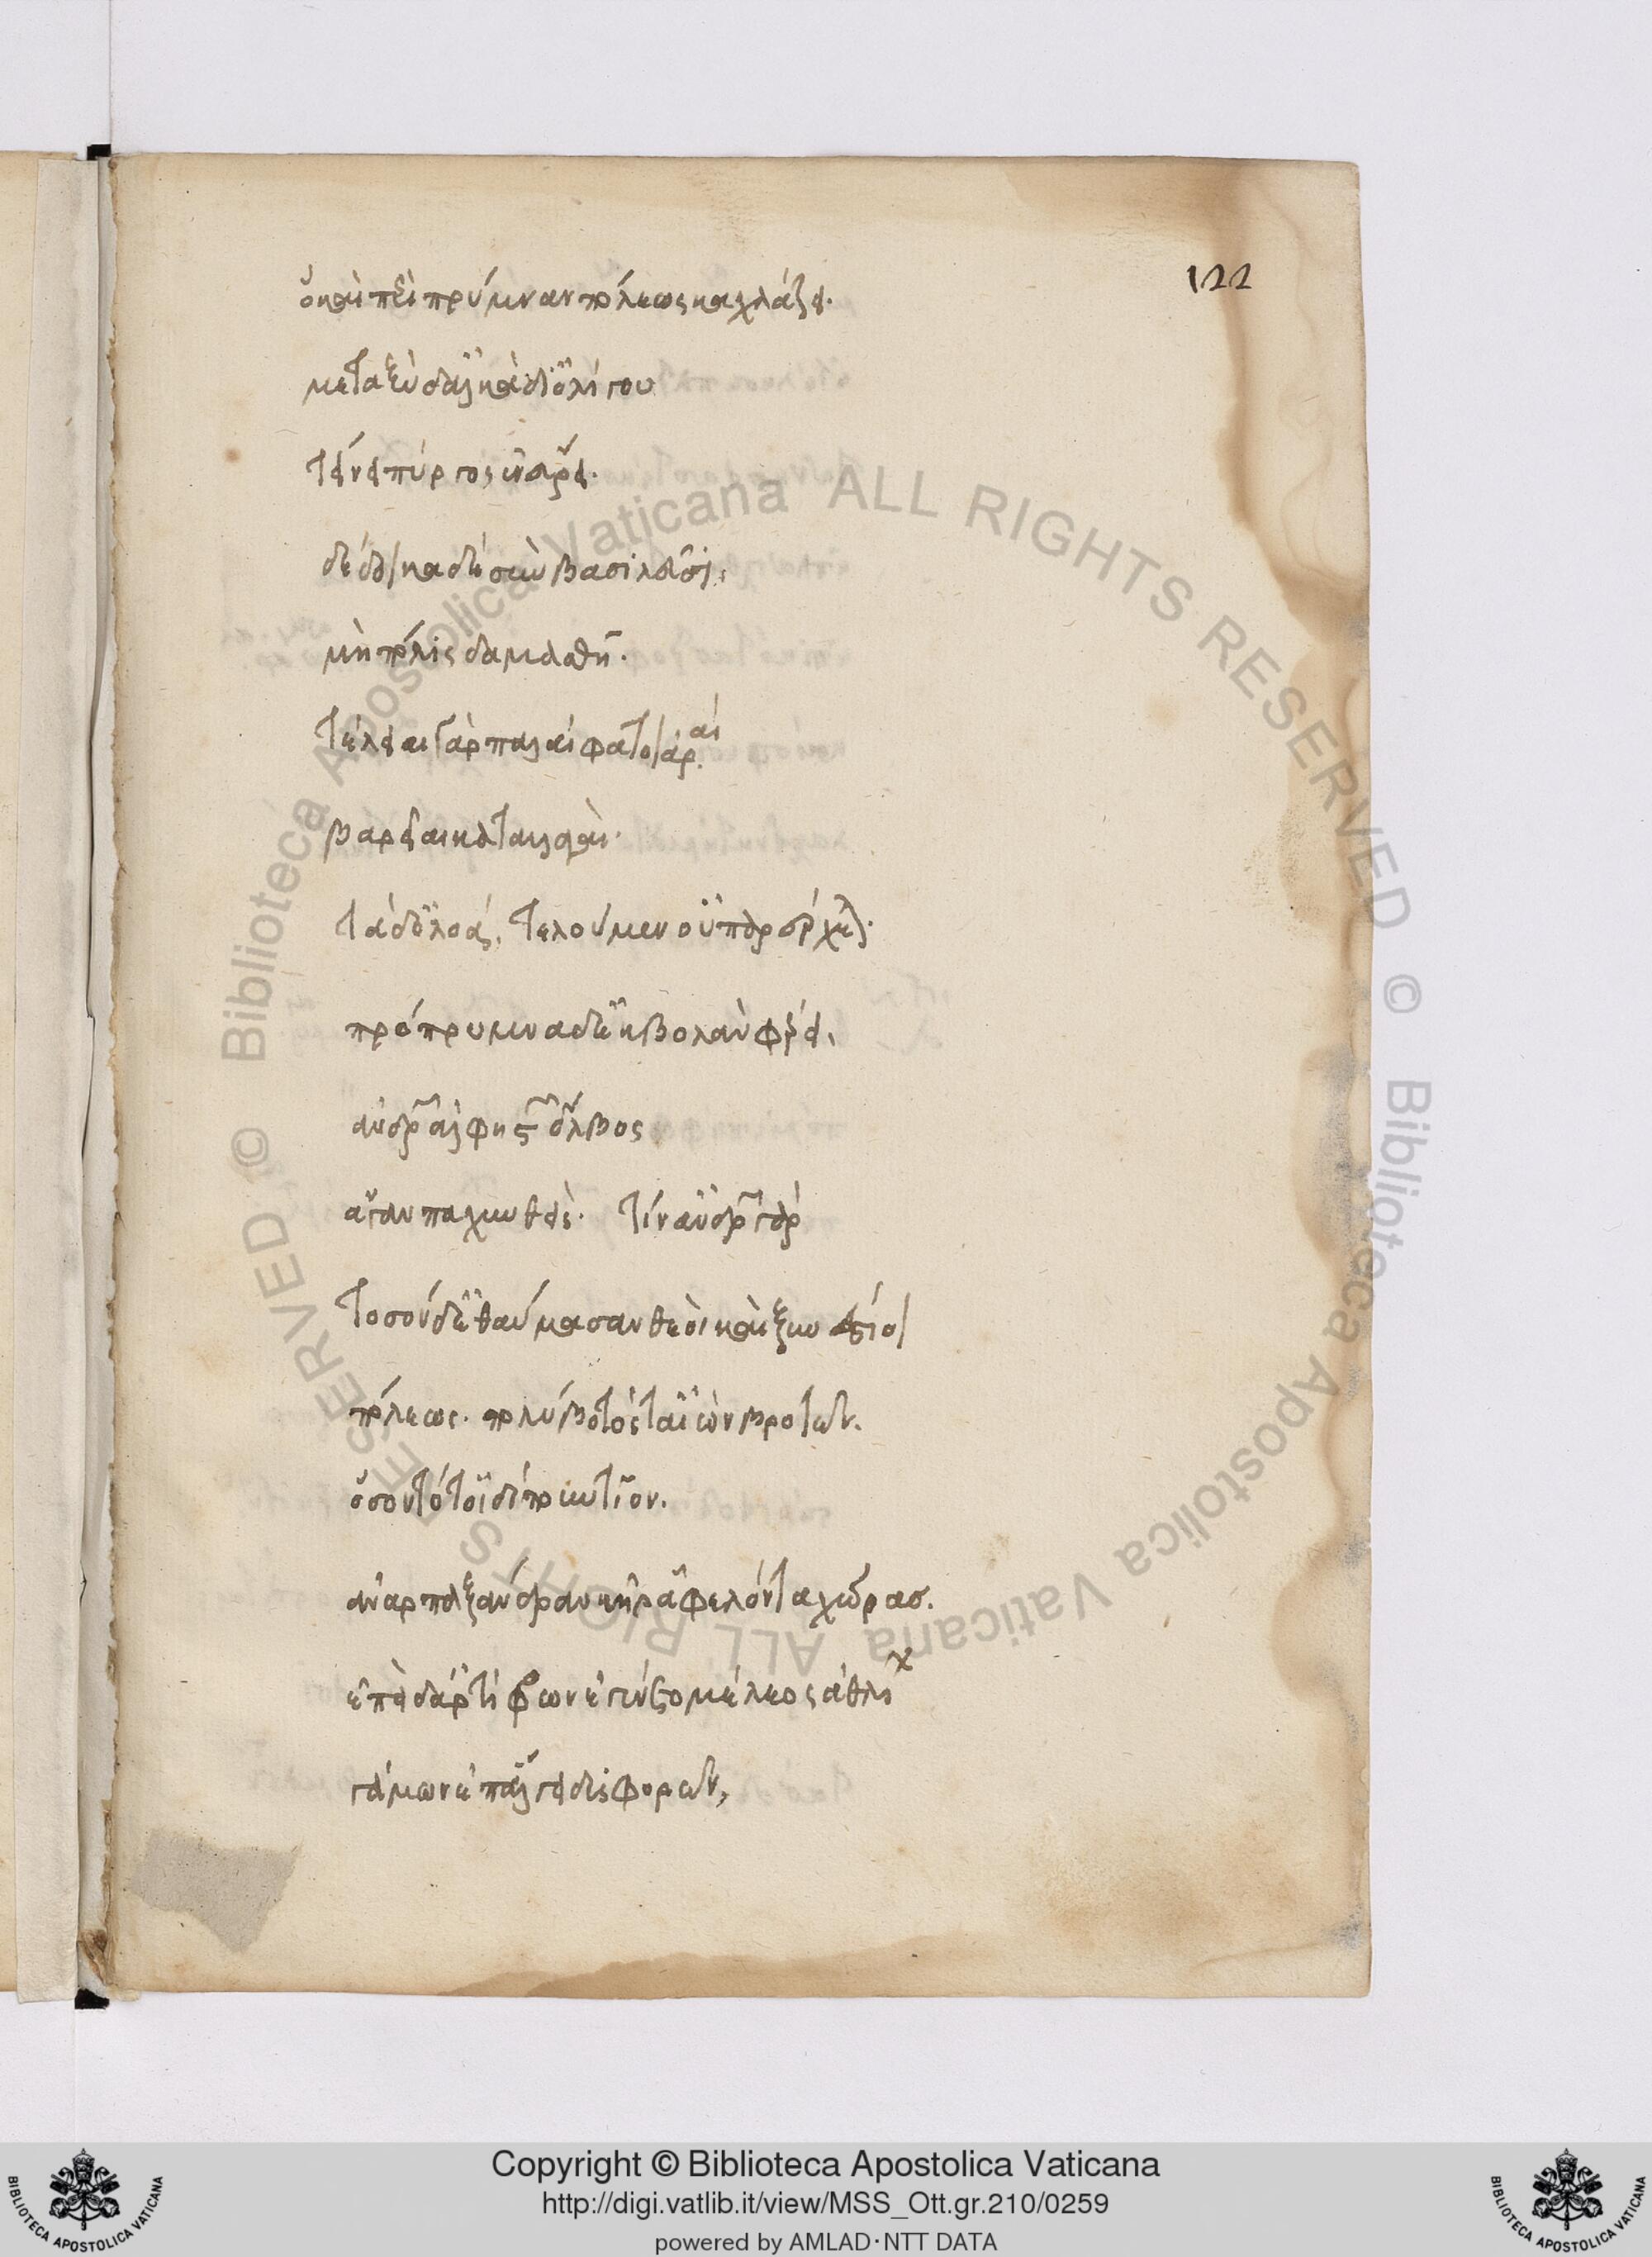 122
ὃ καὶ περὶ πρύμναν πόλεως καχλάζει.
μεταξὺ δ' ἀλκὰ δι' ὀλίγου
τείνει πύργος ἐν εὔρει.
δέδοικα δὲ σὺν βασιλεῦσι,
μὴ πόλις δαμασθῇ.
τέλειαι γὰρ παλαίφατοι ἀραί
βαρεῖαι καταλλαγαί.
τὰ δ' ὀλοά, τελούμεν' οὐ παρέρχεται.
πρόπρυμνα δ' ἐκβολὰν φέρει,
ἀνδρῶν ἀλφηστῶν ὄλβος
ἄγαν παχυνθείς. τίν' ἀνδρῶν γὰρ
τοσόνδ' ἐθαύμασαν θεοὶ καὶ ξυνέστιοι
πόλεως. πολύβοτός τ' αἰὼν βροτῶν.
ὅσον τότ' οἰδίπουν τῖον.
ἀναρπαξάνδραν κῆρ' ἀφελόντα χώρας.
ἐπεὶ δ' ἀρτίφρων ἐγένετο μέλεος ἀθλίων
γάμων ἐπ' ἄλγει δυσφορῶν,
ALL RIGHTS RESERVED © Biblioteca Apostolica Vaticana
ALL RIGHTS RESERVED © Biblioteca Apostolica Vaticana
BIBLIOTECA APOSTOLICA VATICANA
Copyright © Biblioteca Apostolica Vaticana
http://digi.vatlib.it/view/MSS_Ott.gr.210/0259
powered by AMLAD·NTT DATA
BIBLIOTECA APOSTOLICA VATICANA